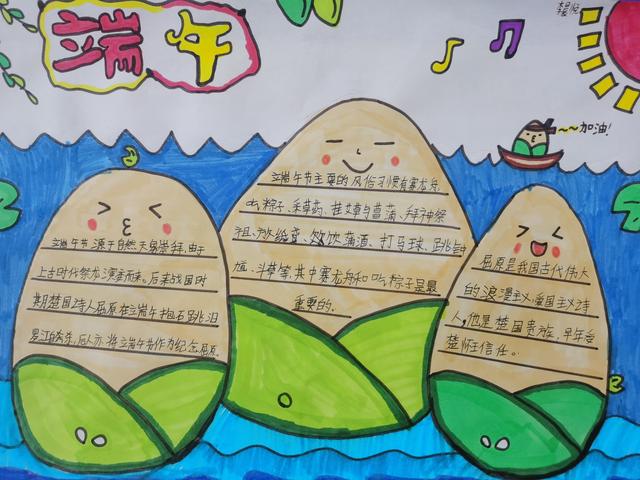 端午
~~加油!
端午节主要的风俗习惯有赛龙舟、
吃粽子、采草药、挂艾草与菖蒲、拜神祭
祖、放纸鸢、饮蒲酒、打马球、跳钟
馗、斗草等,其中赛龙舟和吃粽子是最
重要的。
端午节源于自然天象崇拜,由
上古时代祭龙演变而来。后来战国时
期楚国诗人屈原在端午抱石跳汨
罗江自尽,后人亦将端午节作为纪念屈原。
屈原是我国古代伟大
的浪漫主义爱国主义诗
人,他是楚国贵族,早年受
楚怀王信任。